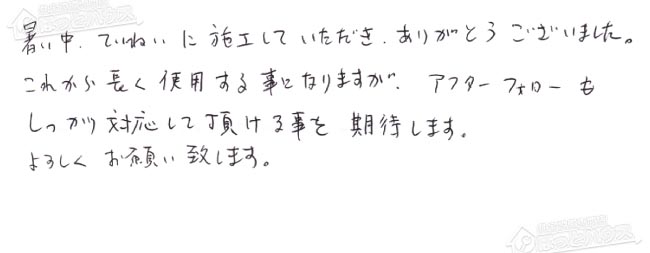 暑い中、ていねいに施工していただき、ありがとうございました。
これから長く使用する事になりますが、アフターフォローも
しっかり対応して頂ける事を期待します。
よろしくお願い致します。